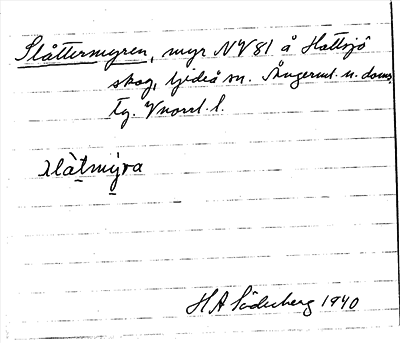 Slåttermyren, myr NV81 å Hattsjö
skog, Gideå sn. Ångerml. n. doms.
tg. Vnorrl. l.
slàtmýra
H A Söderberg 1940